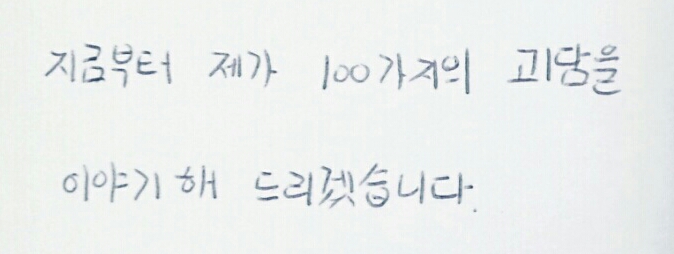 지금부터 제가 100가지의 괴담을
이야기 해 드리겠습니다.